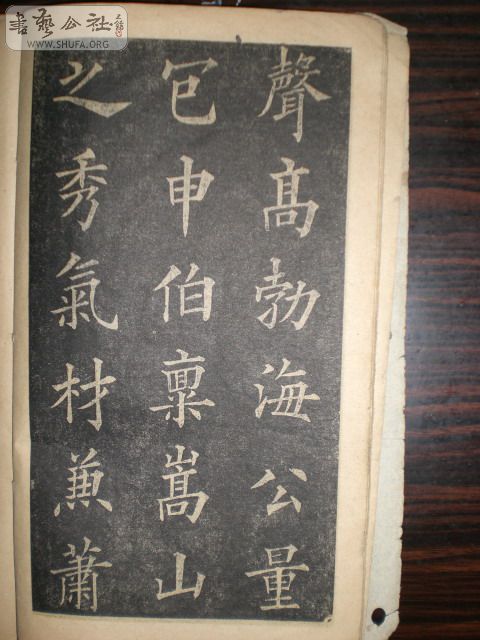 聲高勃海公量
包申伯稟嵩山
之秀氣材兼蕭
書藝公社
WWW.SHUFA.ORG